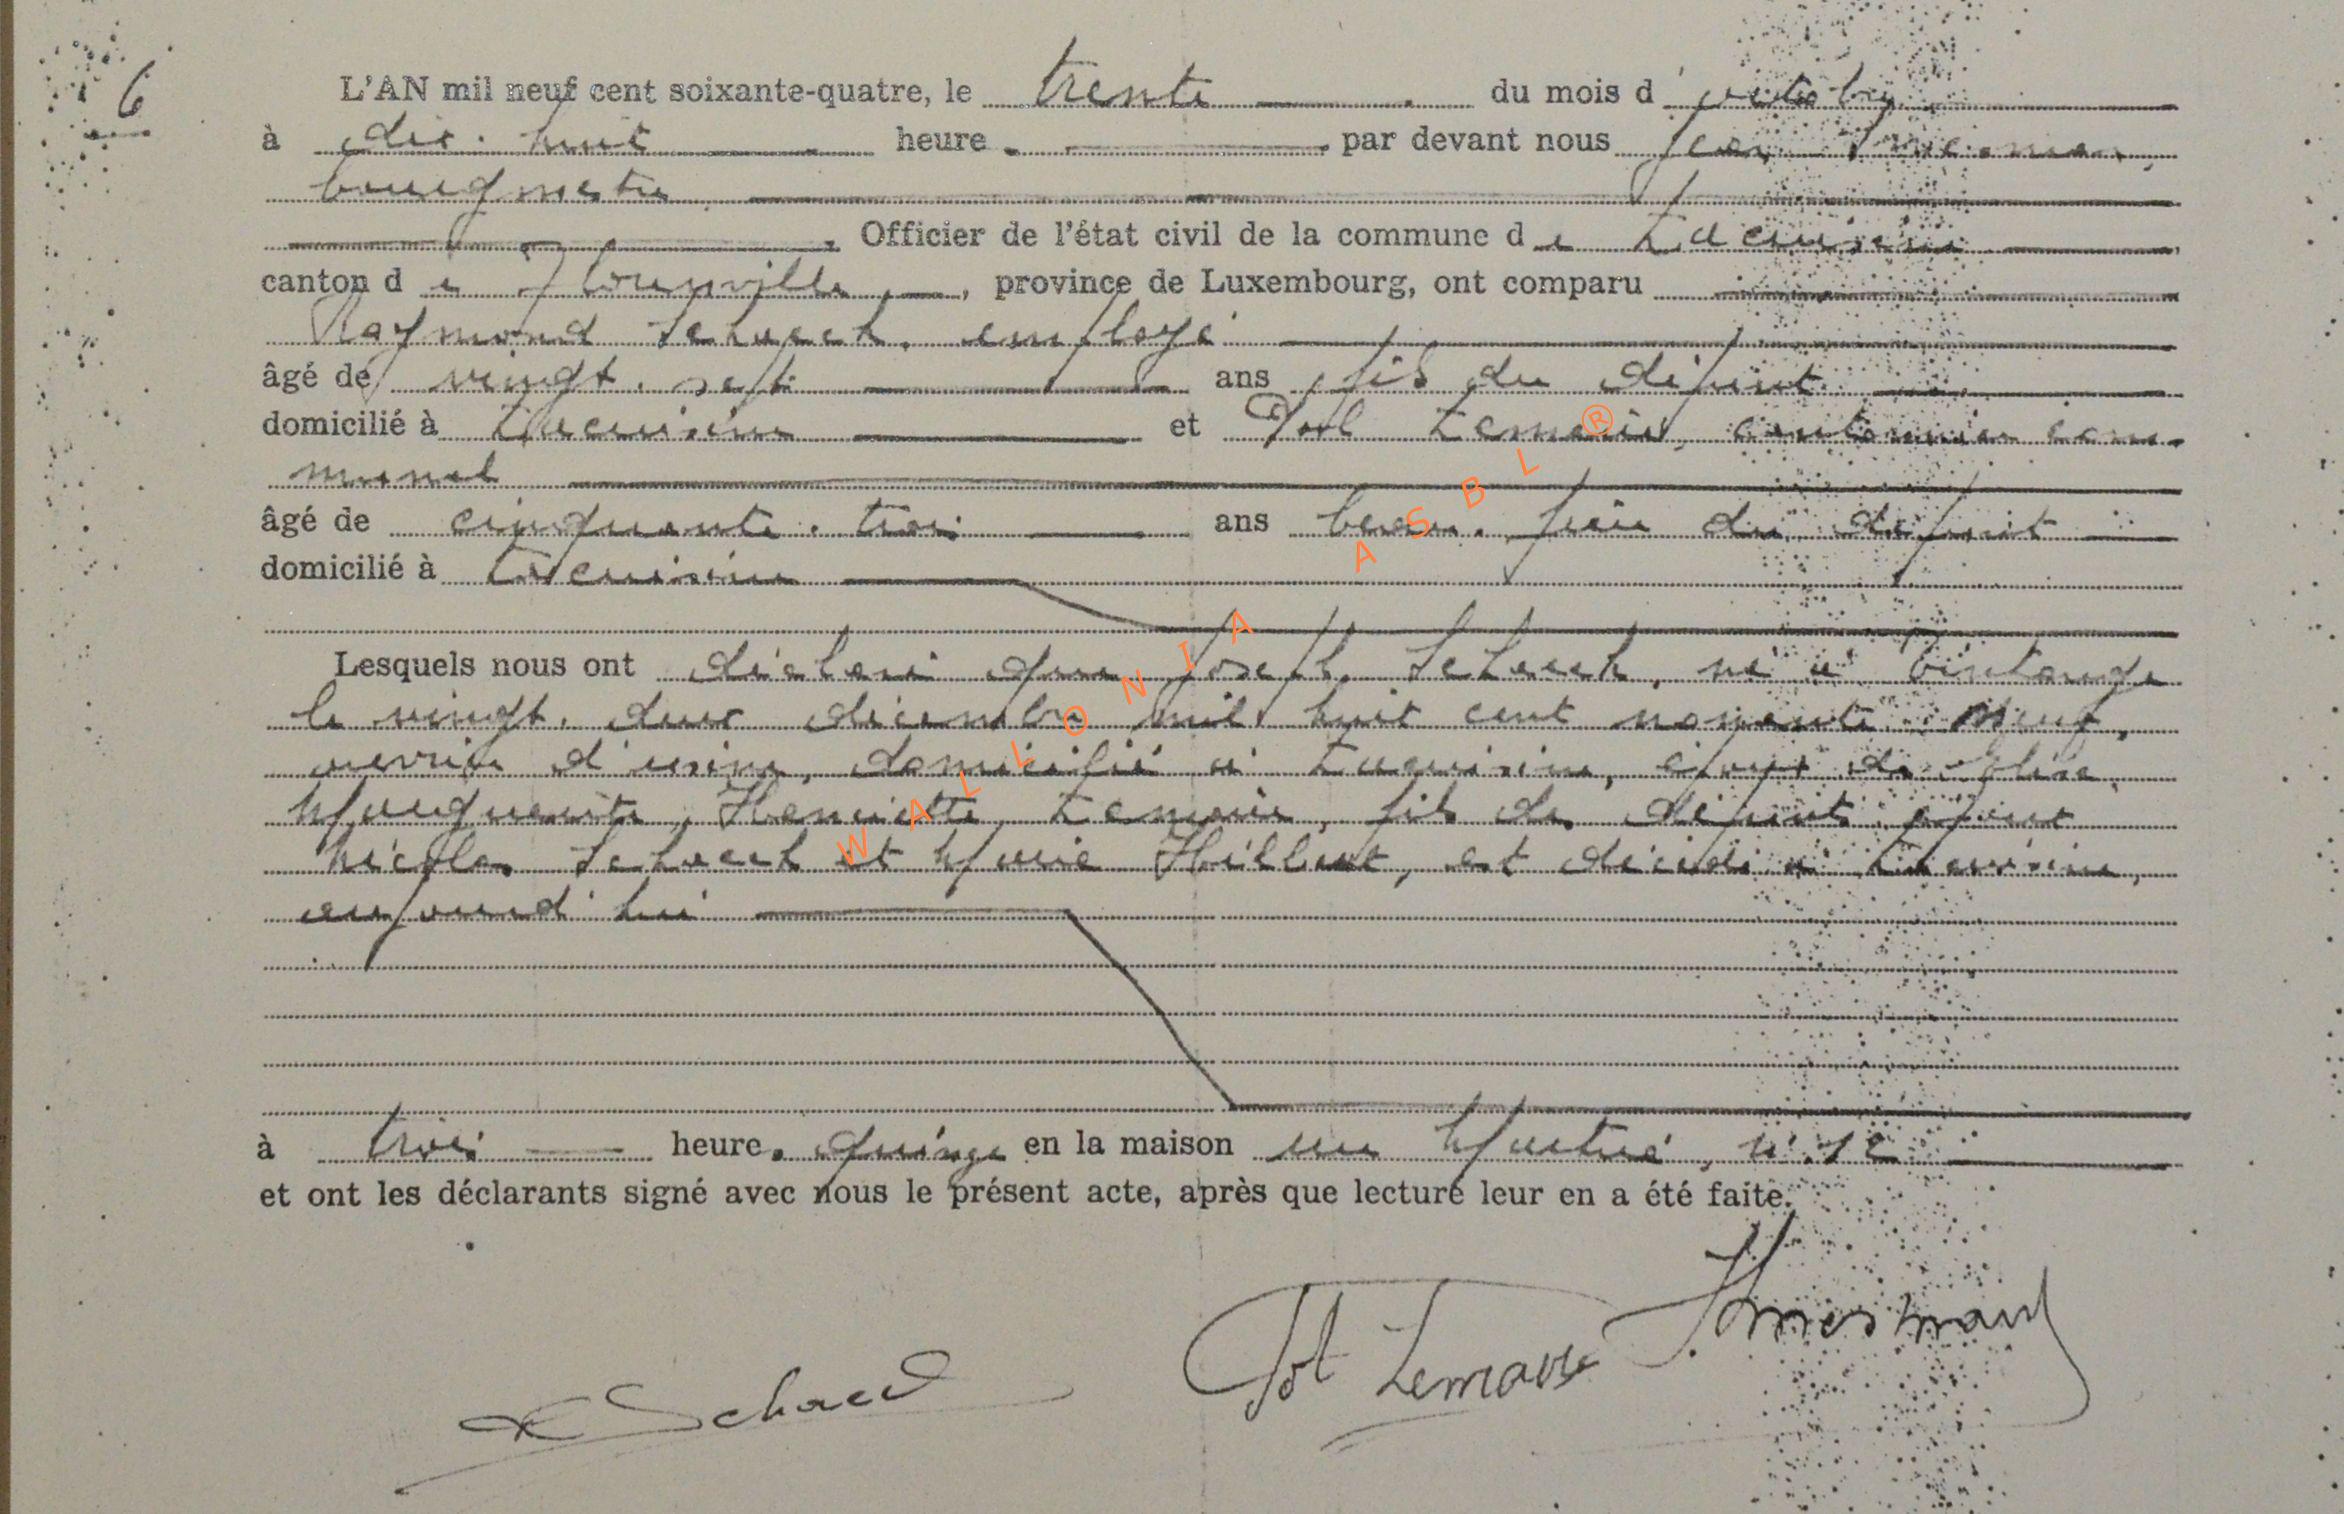 6
L'AN mil neuf cent soixante-quatre, le trente du mois d'octobre
à dix-huit heures par devant nous Jean
bourgmestre
Officier de l'état civil de la commune de Lacuisine
canton de Florenville, province de Luxembourg, ont comparu
Raymond Schaeck, employé
âgé de vingt-sept ans, fils du défunt
domicilié à Lacuisine et Pol Lemaire, cantonnier com-
munal
âgé de cinquante-trois ans beau-frère du défunt
domicilié à Lacuisine
Lesquels nous ont déclaré que Joseph Schaeck, né à Bintange
le vingt-deux décembre mil huit cent nonante-neuf,
ouvrier d'usine, domicilié à Lacuisine, époux de Elise
Marguerite, Henriette, Lemaire, fils des défunts époux
Nicolas Schaeck et Marie Hilbert, est décédé à Lacuisine,
aujourd'hui
à trois heures quinze en la maison rue, n° 12
et ont les déclarants signé avec nous le présent acte, après que lecture leur en a été faite.
Schaeck Pol Lemaire
WALLONIA ASBL ®